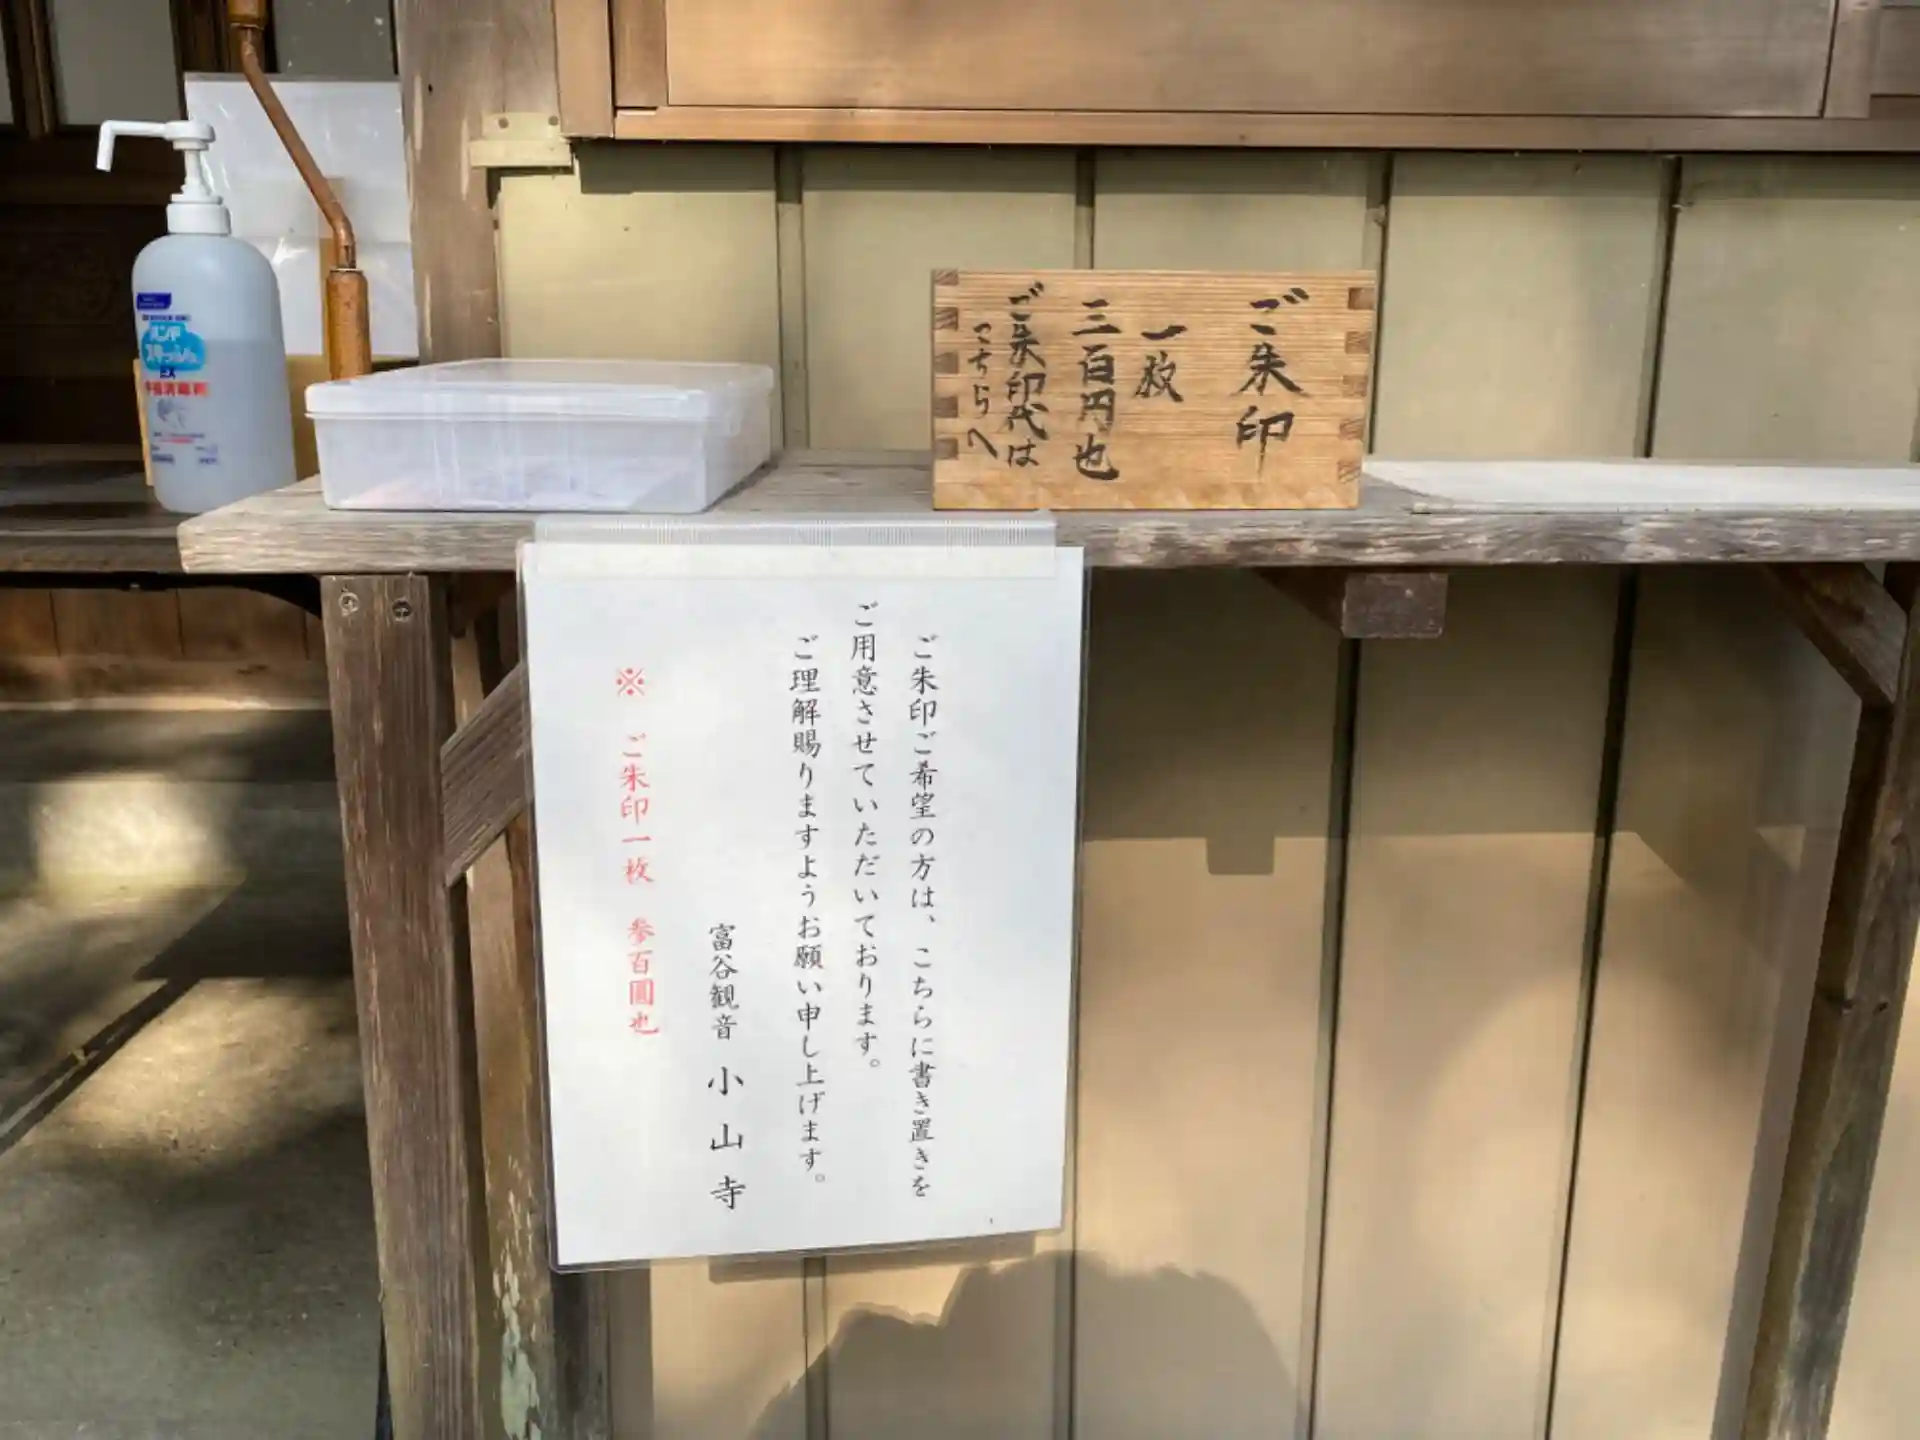 ご朱印
一枚
三百円也
ご朱印代は
こちらへ
ご朱印ご希望の方は、こちらに書き置きを
ご用意させていただいております。
ご理解賜りますようお願い申し上げます。
富谷観音 小山寺
※ ご朱印一枚 参百圓也
ハンド
スキッシュ
EX
手指消毒剤